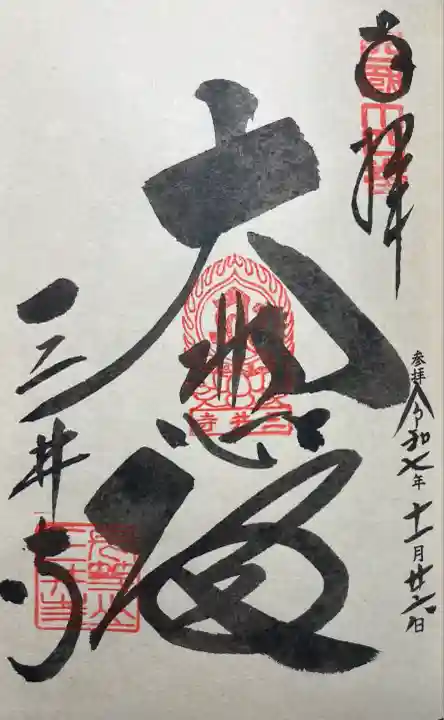 奉拝
参拝 令和七年十一月廿六日
大悲殿
三井寺